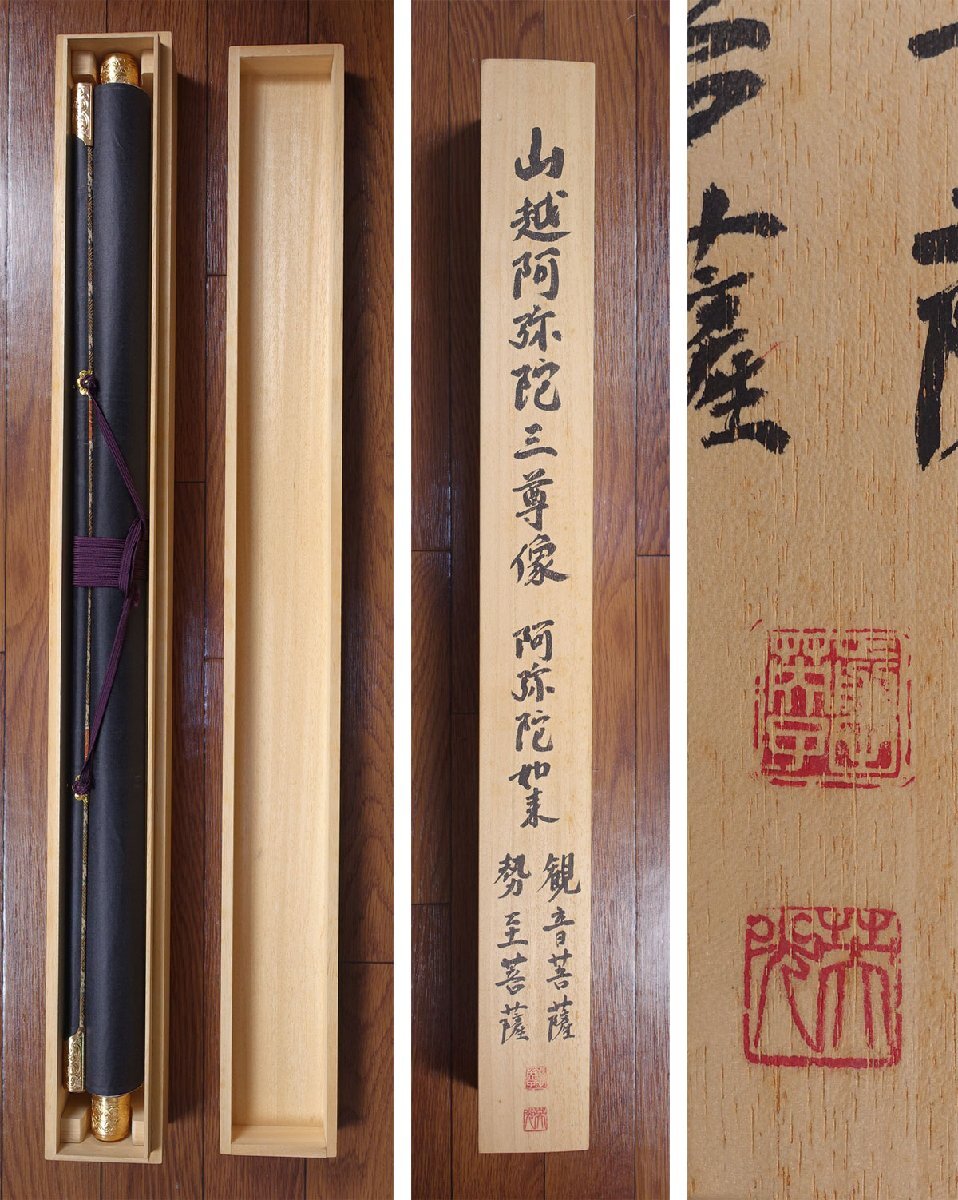 山越阿弥陀三尊像 阿弥陀如来
観音菩薩
勢至菩薩